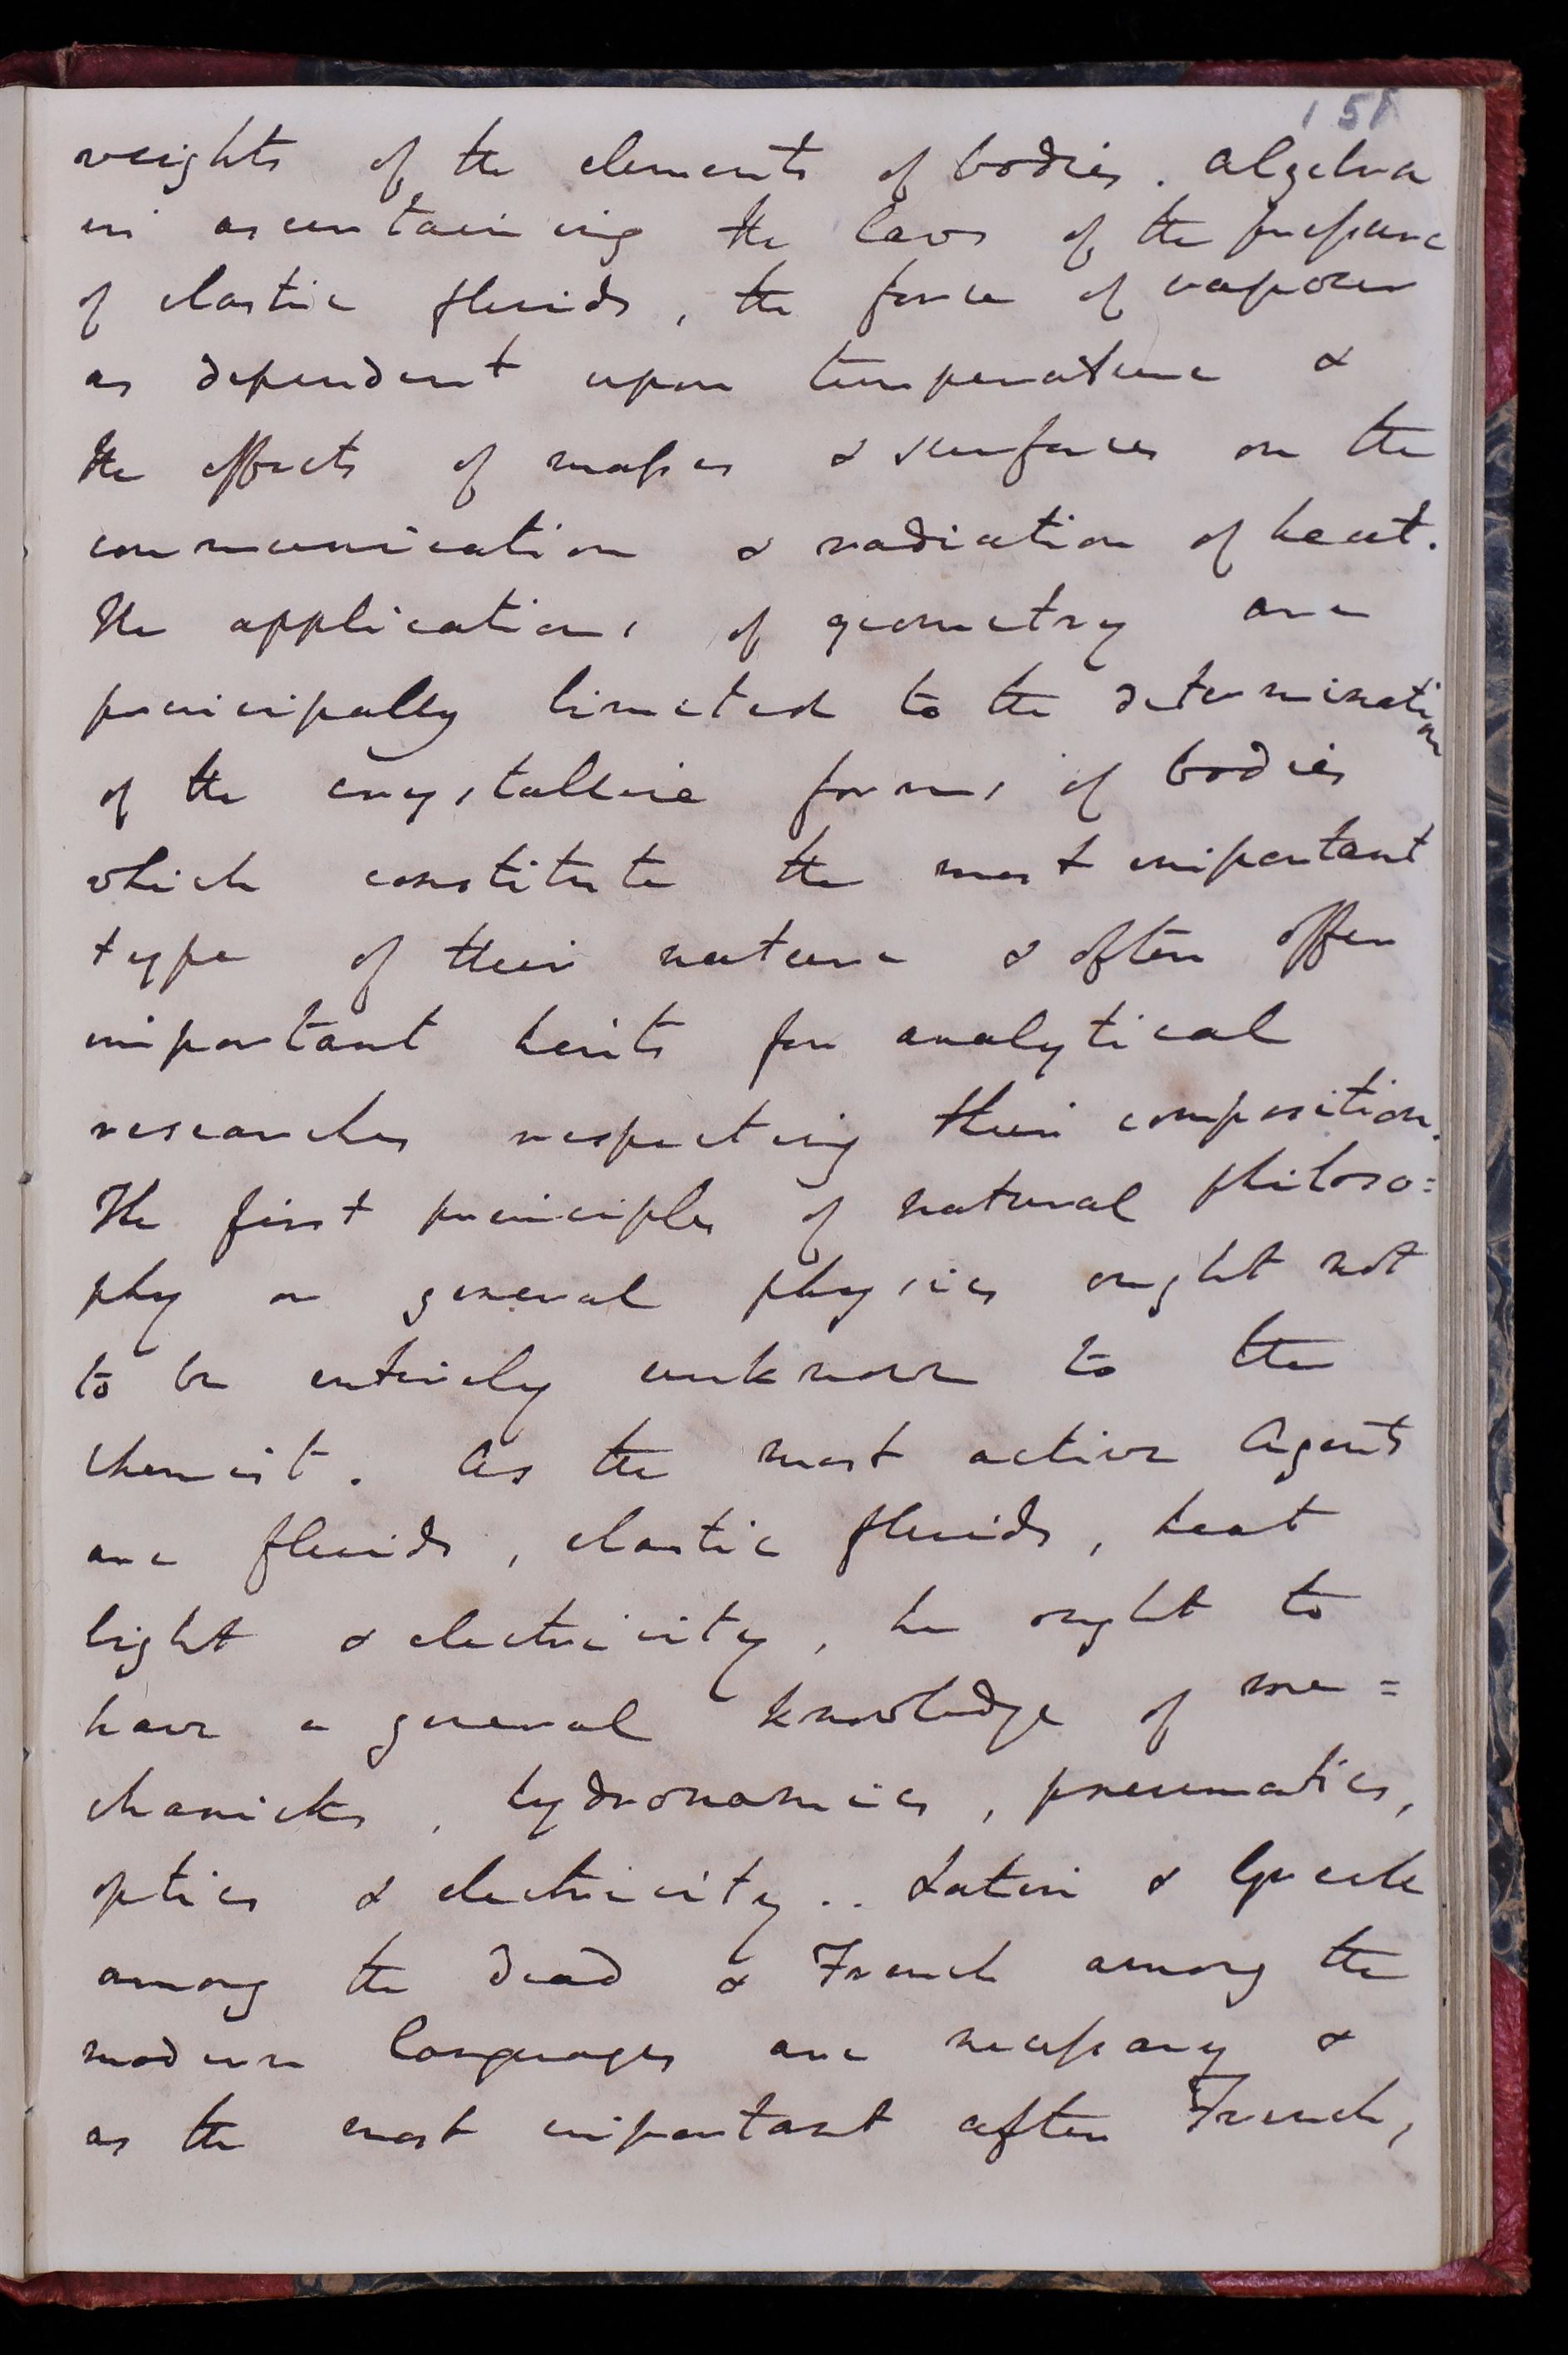 158
weights of the elements of bodies. Algebra
in ascertaining the laws of the pressure
of elastic fluids, the force of vapour
as dependent upon temperature &
the effects of masses & surfaces on the
communication & radiation of heat.
The applications of geometry are
principally limited to the determination
of the crystalline forms of bodies
which constitute the most important
type of their nature & often offer
important hints for analytical
researches respecting their composition.
The first principles of natural philoso=
phy or general physics ought not
to be entirely unknown to the
chemist. As the most active Agents
are fluids, elastic fluids, heat
light & electricity, he ought to
have a general knowledge of me=
chanicks, hydronamics, pneumatics,
optics & electricity.. Latin & Greek
among the dead & French among the
modern languages are necessary &
as the most important after French,